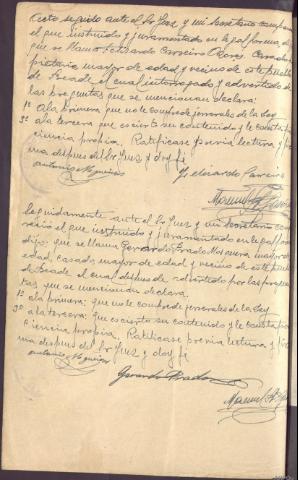 Acto seguido ante el Sr Juez y mi Secretario compare
el que instruido y juramentado en legal forma di
que se llama Gerardo Carreiro Casado
pietario mayor de edad y vecino de este pueblo
de Seade el cual interrogado y advertido de
las preguntas que se mencionan declara:
1ª A la primera que no le comprende generales de la Ley
3ª a la tercera que es cierto su contenido y le consta por
ciencia propia. Ratificase previa lectura y fir
ma despues del Sr Juez y doy fé
Antonio Nogueiras
Gerardo Carreiro
Manuel
Seguidamente ante el Sr Juez y mi Secretario com
reció el que instruido y juramentado en legal forma
dijo: que se llama Gerardo Prado Mosquera mayor de
edad, casado, mayor de edad y vecino de este pueblo
de Seade el cual despues de advertido por las pregun
tas que se mencionan declara.
1ª a la primera: que no le comprende generales de la Ley
3ª a la tercera: que es cierto su contenido y le consta por
ciencia propia. Ratificase previa lectura y fir
ma despues del Sr Juez y doy fé
Antonio Nogueiras
Gerardo Prado
Manuel